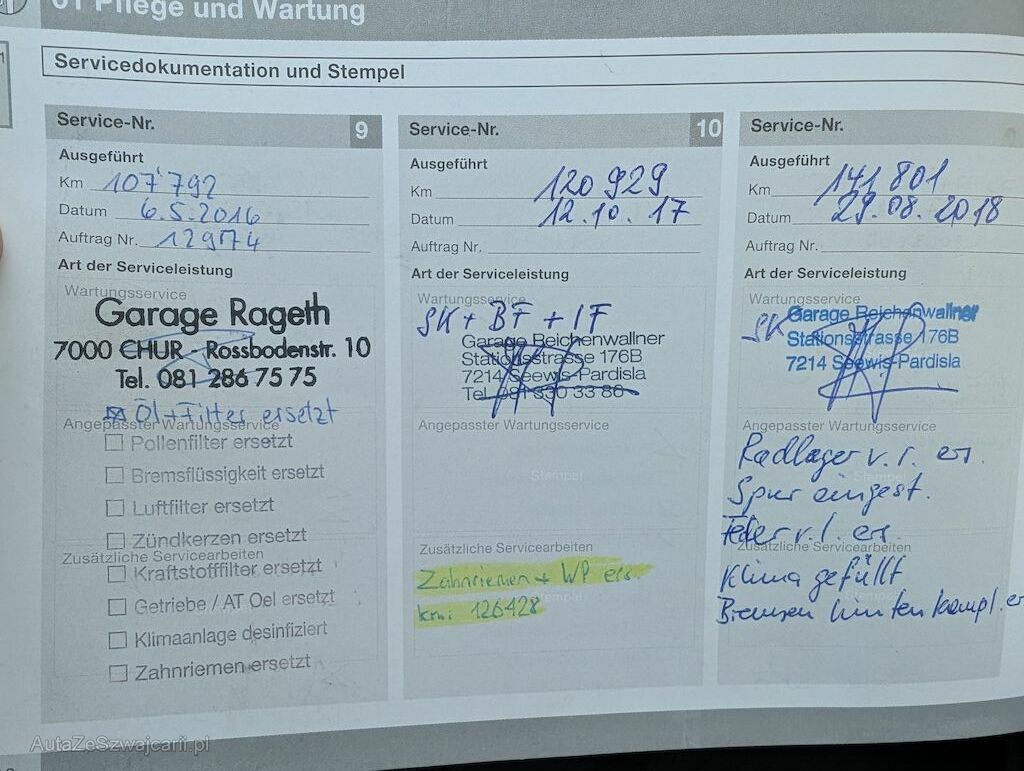 01 Pflege und Wartung
Servicedokumentation und Stempel
Service-Nr. 9
Ausgeführt
Km 107'792
Datum 6.5.2016
Auftrag Nr. 12974
Art der Serviceleistung
Wartungsservice
Garage Rageth
7000 CHUR - Rossbodenstr. 10
Tel. 081 286 75 75
Öl+Filter ersetzt
Angepasster Wartungsservice
Pollenfilter ersetzt
Bremsflüssigkeit ersetzt
Luftfilter ersetzt
Zündkerzen ersetzt
Zusätzliche Servicearbeiten
Kraftstofffilter ersetzt
Getriebe / AT Oel ersetzt
Klimaanlage desinfiziert
Zahnriemen ersetzt
Service-Nr. 10
Ausgeführt
Km 120 929
Datum 12.10.17
Auftrag Nr.
Art der Serviceleistung
Wartungsservice
SK + BF + IF
Garage Reichenwallner
Stationsstrasse 176B
7214 Seewis-Pardisla
Tel. 081 330 33 80
Angepasster Wartungsservice
Stempel
Zusätzliche Servicearbeiten
Zahnriemen + WP ers.
km: 126428
Stempel
Service-Nr.
Ausgeführt
Km 141 801
Datum 29.08.2018
Auftrag Nr.
Art der Serviceleistung
Wartungsservice
SK
Garage Reichenwallner
Stationsstrasse 176B
7214 Seewis-Pardisla
Angepasster Wartungsservice
Radlager v. r. er.
Spur eingest.
Feder v. l. er.
Zusätzliche Servicearbeiten
Klima gefüllt
Bremsen hinten kompl. er
AutaZeSzwajcarii.pl